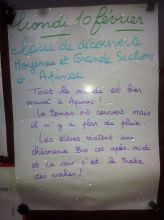 Lundi 10 février
Classe de découverte
Moyenne et Grande Section
à Apinac
Tout le monde est bien
arrivé à Apinac !
Le temps est couvert mais
il n'y a plus de pluie.
Les élèves visitent une
chèvrerie Bio cet après-midi
et ce soir c'est la traite
des vaches !